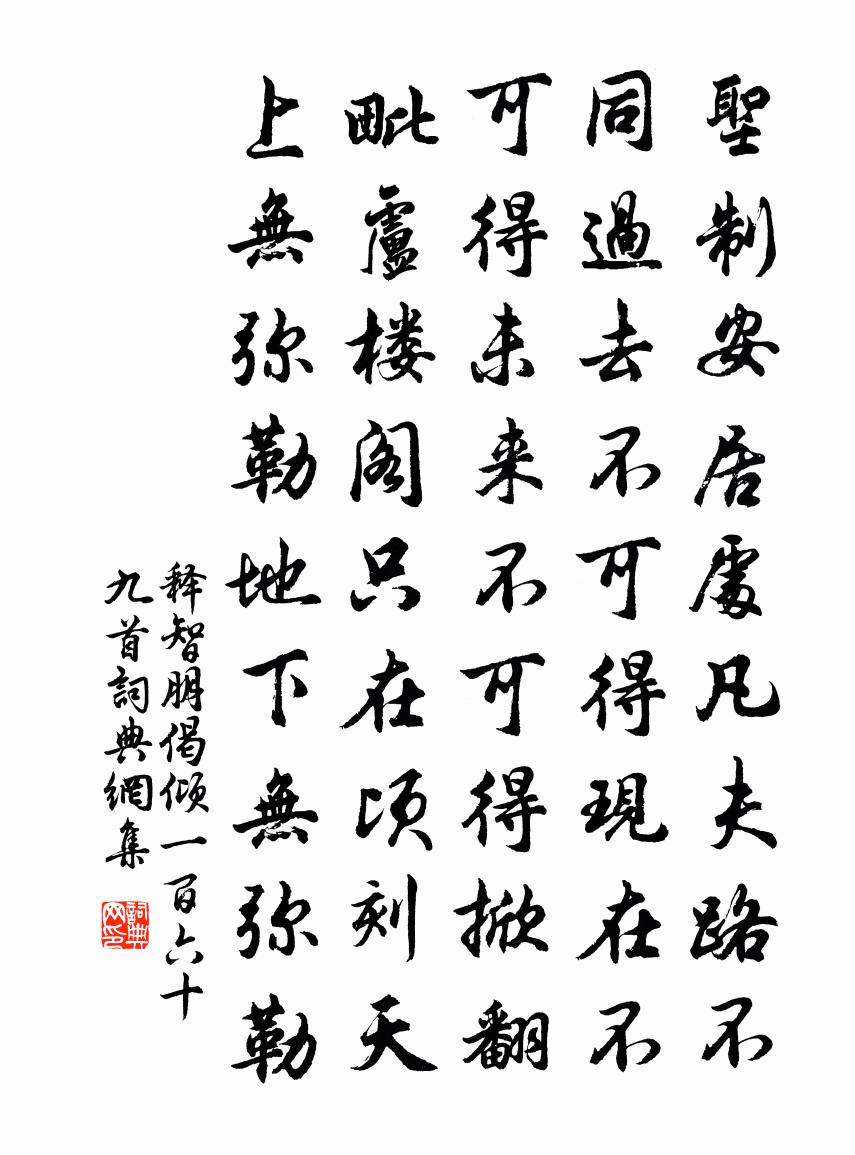 聖制安居處凡夫路不
同過去不可得現在不
可得未来不可得掀翻
毗盧楼阁只在顷刻天
上無弥勒地下無弥勒
释智朋偈倾一百六十
九首詞典網集
詞典网印